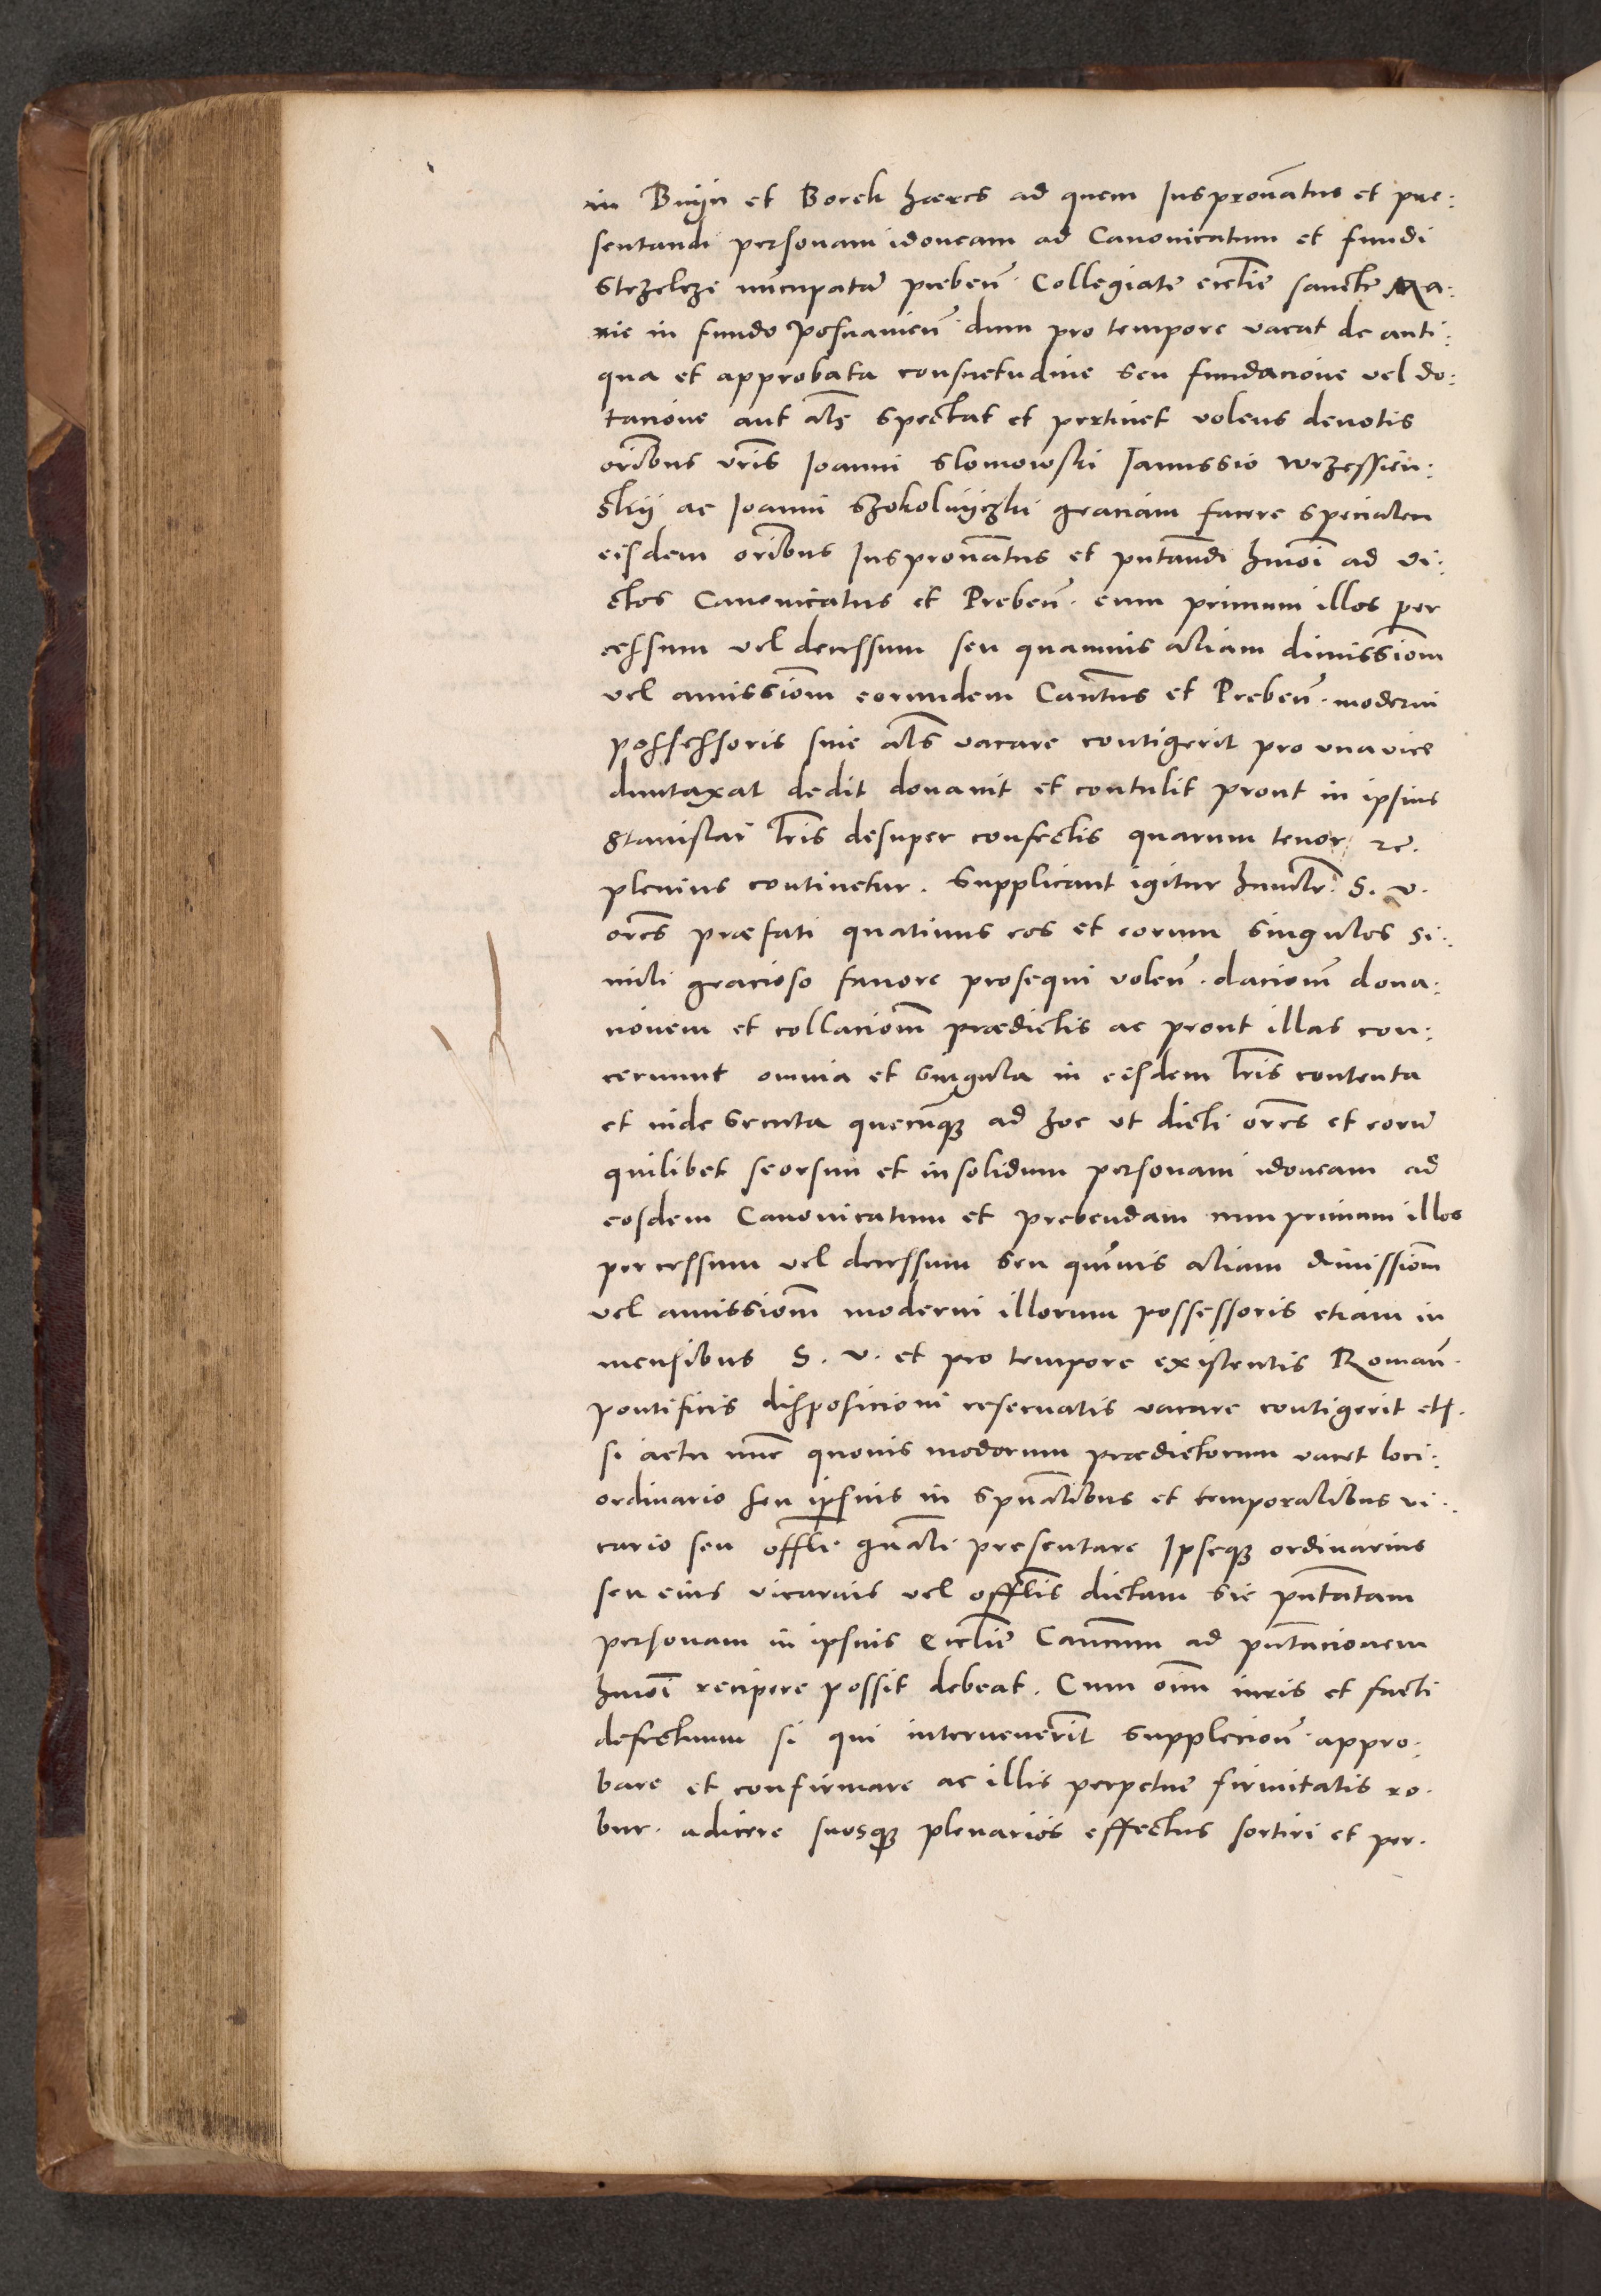 in Buÿn et Borek hæres ad quem Juspronatus et prę:
sentandi personam idoneam ad Canonicatum et fundi
Strzelcze nūcupatā preben̄. Collegiate ecctie sancte Ma:
rie in fundo Posnanien̄. dum pro tempore vacat de anti:
qua et approbata consuetudine seu fundacione vel do:
tacione aut als spectat et pertinet volens deuotis
oribus vris Joanni Slomowski Janussio wrzessien:
skÿ ac Joanni Szokolnÿczki graciam facere specialem
eisdem oribus Juspronatus et pntandi hmoi ad di:
ctos Canonicatus et Preben̄. cum primum illos per
cessum vel decessum seu quamuis aliam dimissiom
vel amissiom eorundem Cantus et Preben̄. moderni
possessoris siue als vacare contigerit pro vna vice
duntaxat dedit donauit et contulit prout in ipsius
Stanislai lris desuper confectis quarum tenor rc.
plenius continetur. Supplicant igitur humilr. S. v.
ores præfati quatinus eos et eorum singulos si:
mili gracioso fauore prosequi volen̄. daciom dona:
cionem et collaciom prædictis ac prout illas con:
cernunt omnia et singula in eisdem lris contenta
et inde secuta quecunqȝ ad hoc vt dicti ores et eorū
quilibet seorsum et insolidum personam idoneam ad
eosdem Canonicatum et prebendam cum primum illos
per cessum vel decessum seu quāuis aliam dimissiom
vel amissiom moderni illorum possessoris etiam in
mensibus S. v. et pro tempore existentis Roman̄.
pontificis disposicioni reseruatis vacare contigerit et.
si actu nūc quouis modorum prædictorum vacet loci:
ordinario seu ipsius in spualibus et temporalibus vi:
cario seu offli gnali presentare Ipseqȝ ordinarius
seu eius vicarius vel offlis dictam sic pntatam
personam in ipsius Ecctie Canonicum ad pntacionem
hmoi recipere possit debeat. Cum oim iuris et facti
defectuum si qui interuenerit supplecion̄. appro:
bare et confirmare ac illis perpetue firmitatis ro.
bur. adicere suosqȝ plenarios effectus sortiri et per.